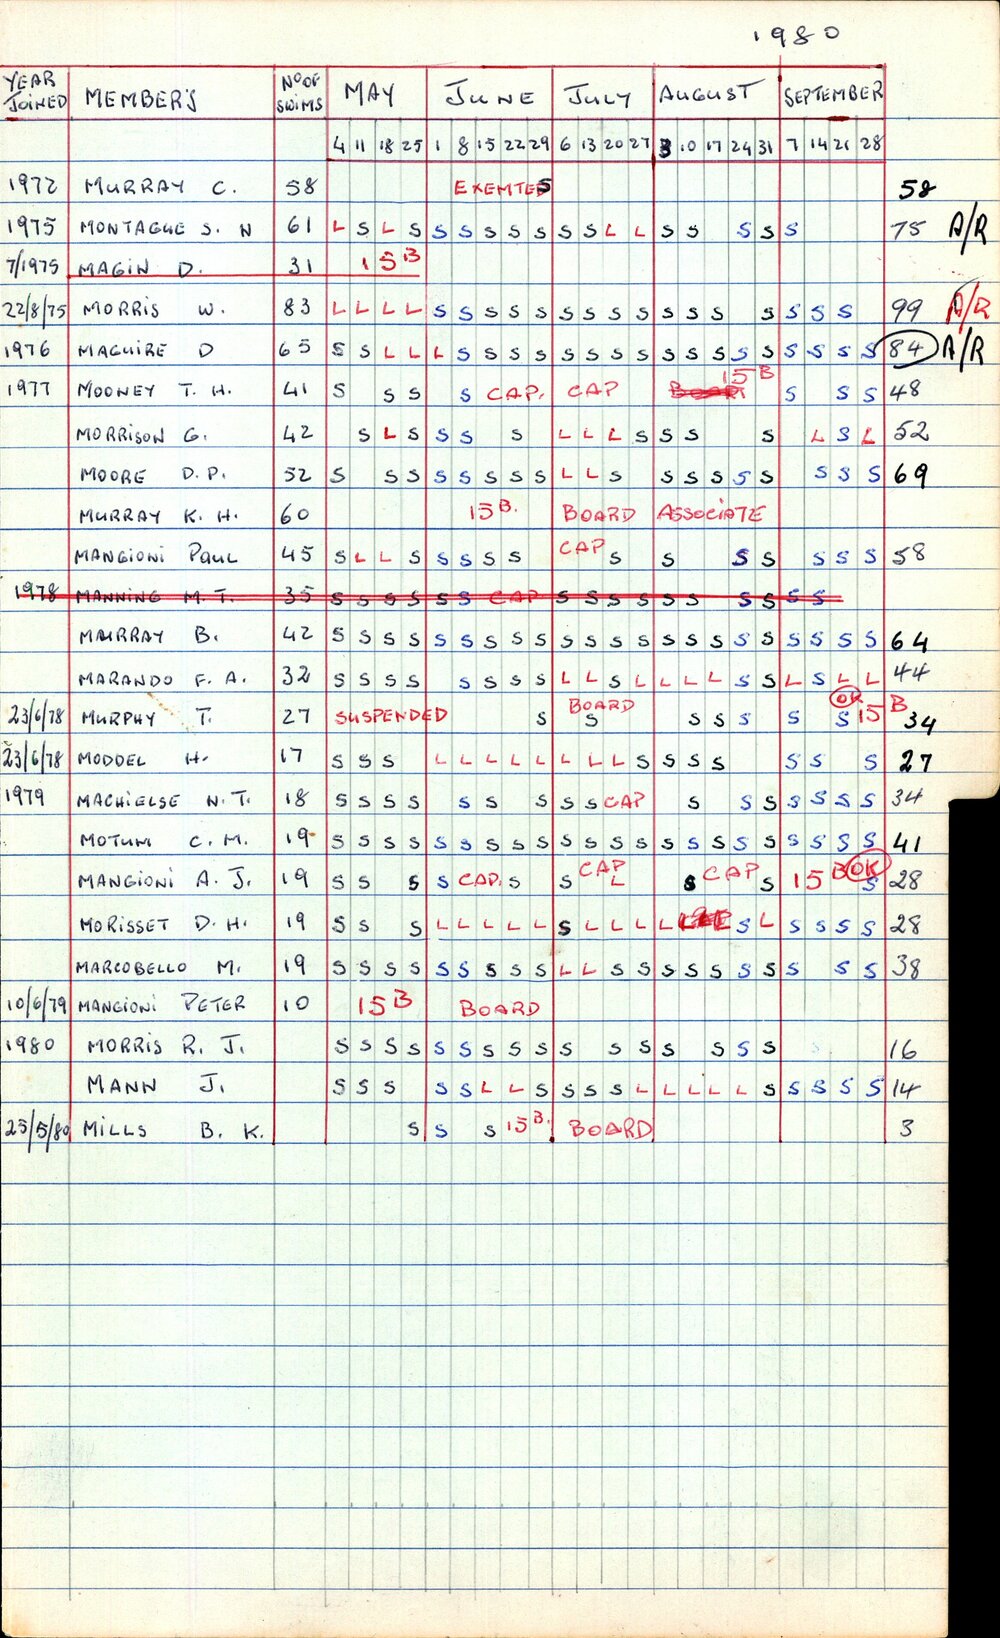 1980
YEAR JOINED MEMBER'S Nº OF SWIMS MAY JUNE JULY AUGUST SEPTEMBER
4 11 18 25 1 8 15 22 29 6 13 20 27 3 10 17 24 31 7 14 21 28
1972 MURRAY C. 58 EXEMTED S 58
1975 MONTAGUE S. N 61 L S L S S S S S S S S L L S S S S S 75 A/R
7/1975 MAGIN D. 31 15 B
22/8/75 MORRIS W. 83 L L L L S S S S S S S S S S S S S S S S 99 A/R
1976 MAGUIRE D 65 S S L L L S S S S S S S S S S S S S S S S S 84 A/R
1977 MOONEY T. H. 41 S S S S CAP. CAP 15 B S S S 48
MORRISON G. 42 S L S S S S L L L S S S S L S L 52
MOORE D. P. 52 S S S S S S S S L L S S S S S S S S S 69
MURRAY K. H. 60 15 B. BOARD ASSOCIATE
MANGIONI PAUL 45 S L L S S S S S CAP S S S S S S S 58
1978 MANNING M. T. 35 S S S S S S CAP S S S S S S S S S S
MURRAY B. 42 S S S S S S S S S S S S S S S S S S S S S S 64
MARANDO F. A. 32 S S S S S S S S L L S L L L L S S L S L L 44
23/6/78 MURPHY T. 27 SUSPENDED S BOARD S S S S S S OK 15 B 34
23/6/78 MODDEL H. 17 S S S L L L L L L L L S S S S S S S 27
1979 MACHIELSE N. T. 18 S S S S S S S S S CAP S S S S S S S 34
MOTUM C. M. 19 S S S S S S S S S S S S S S S S S S S S S S 41
MANGIONI A. J. 19 S S S S CAP. S S CAP L S CAP S 15 B OK S 28
MORISSET D. H. 19 S S S L L L L L S L L L L S L S S S S 28
MARCOBELLO M. 19 S S S S S S S S S L L S S S S S S S S S S 38
10/6/79 MANGIONI PETER 10 15 B BOARD
1980 MORRIS R. J. S S S S S S S S S S S S S S S S 16
MANN J. S S S S S L L S S S S L L L L L S S S S S 14
25/5/80 MILLS B. K. S S S 15 B. BOARD 3